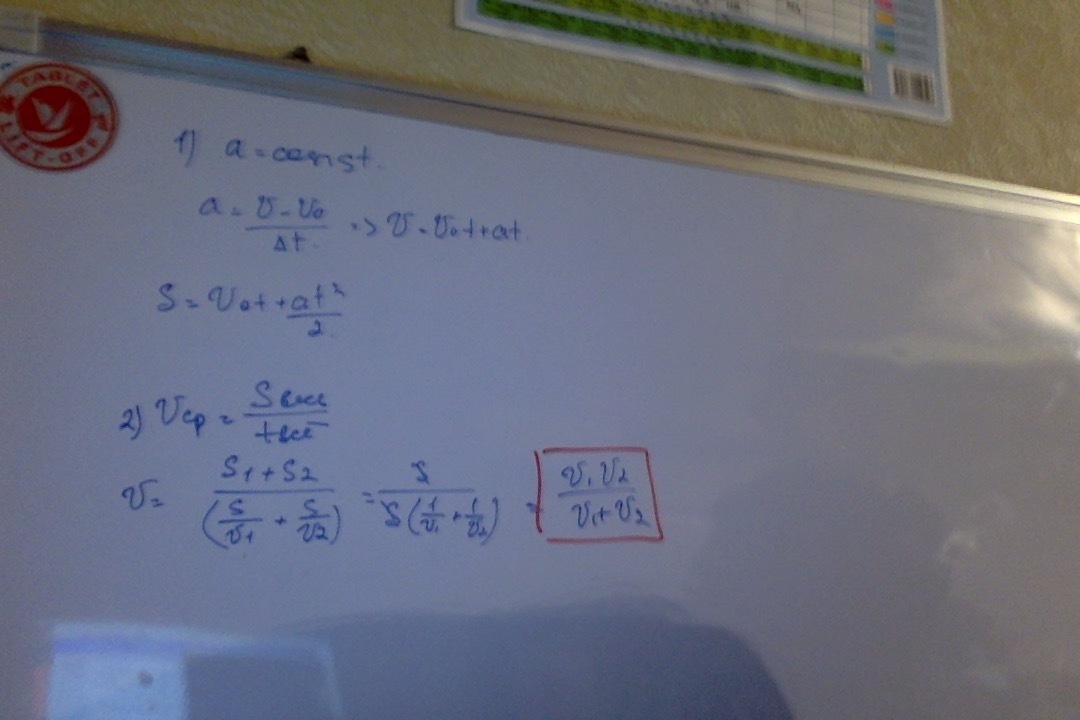 TABLET
LIFT-OFF
1) a = const.
a = (v - v₀)/Δt. => v = v₀t + at
S = v₀t + at²/2.
2) vср = Sвсе/tвсё
v = (S₁ + S₂)/(S/v₁ + S/v₂) = S/(S(1/v₁ + 1/v₂)) = v₁v₂/(v₁ + v₂)